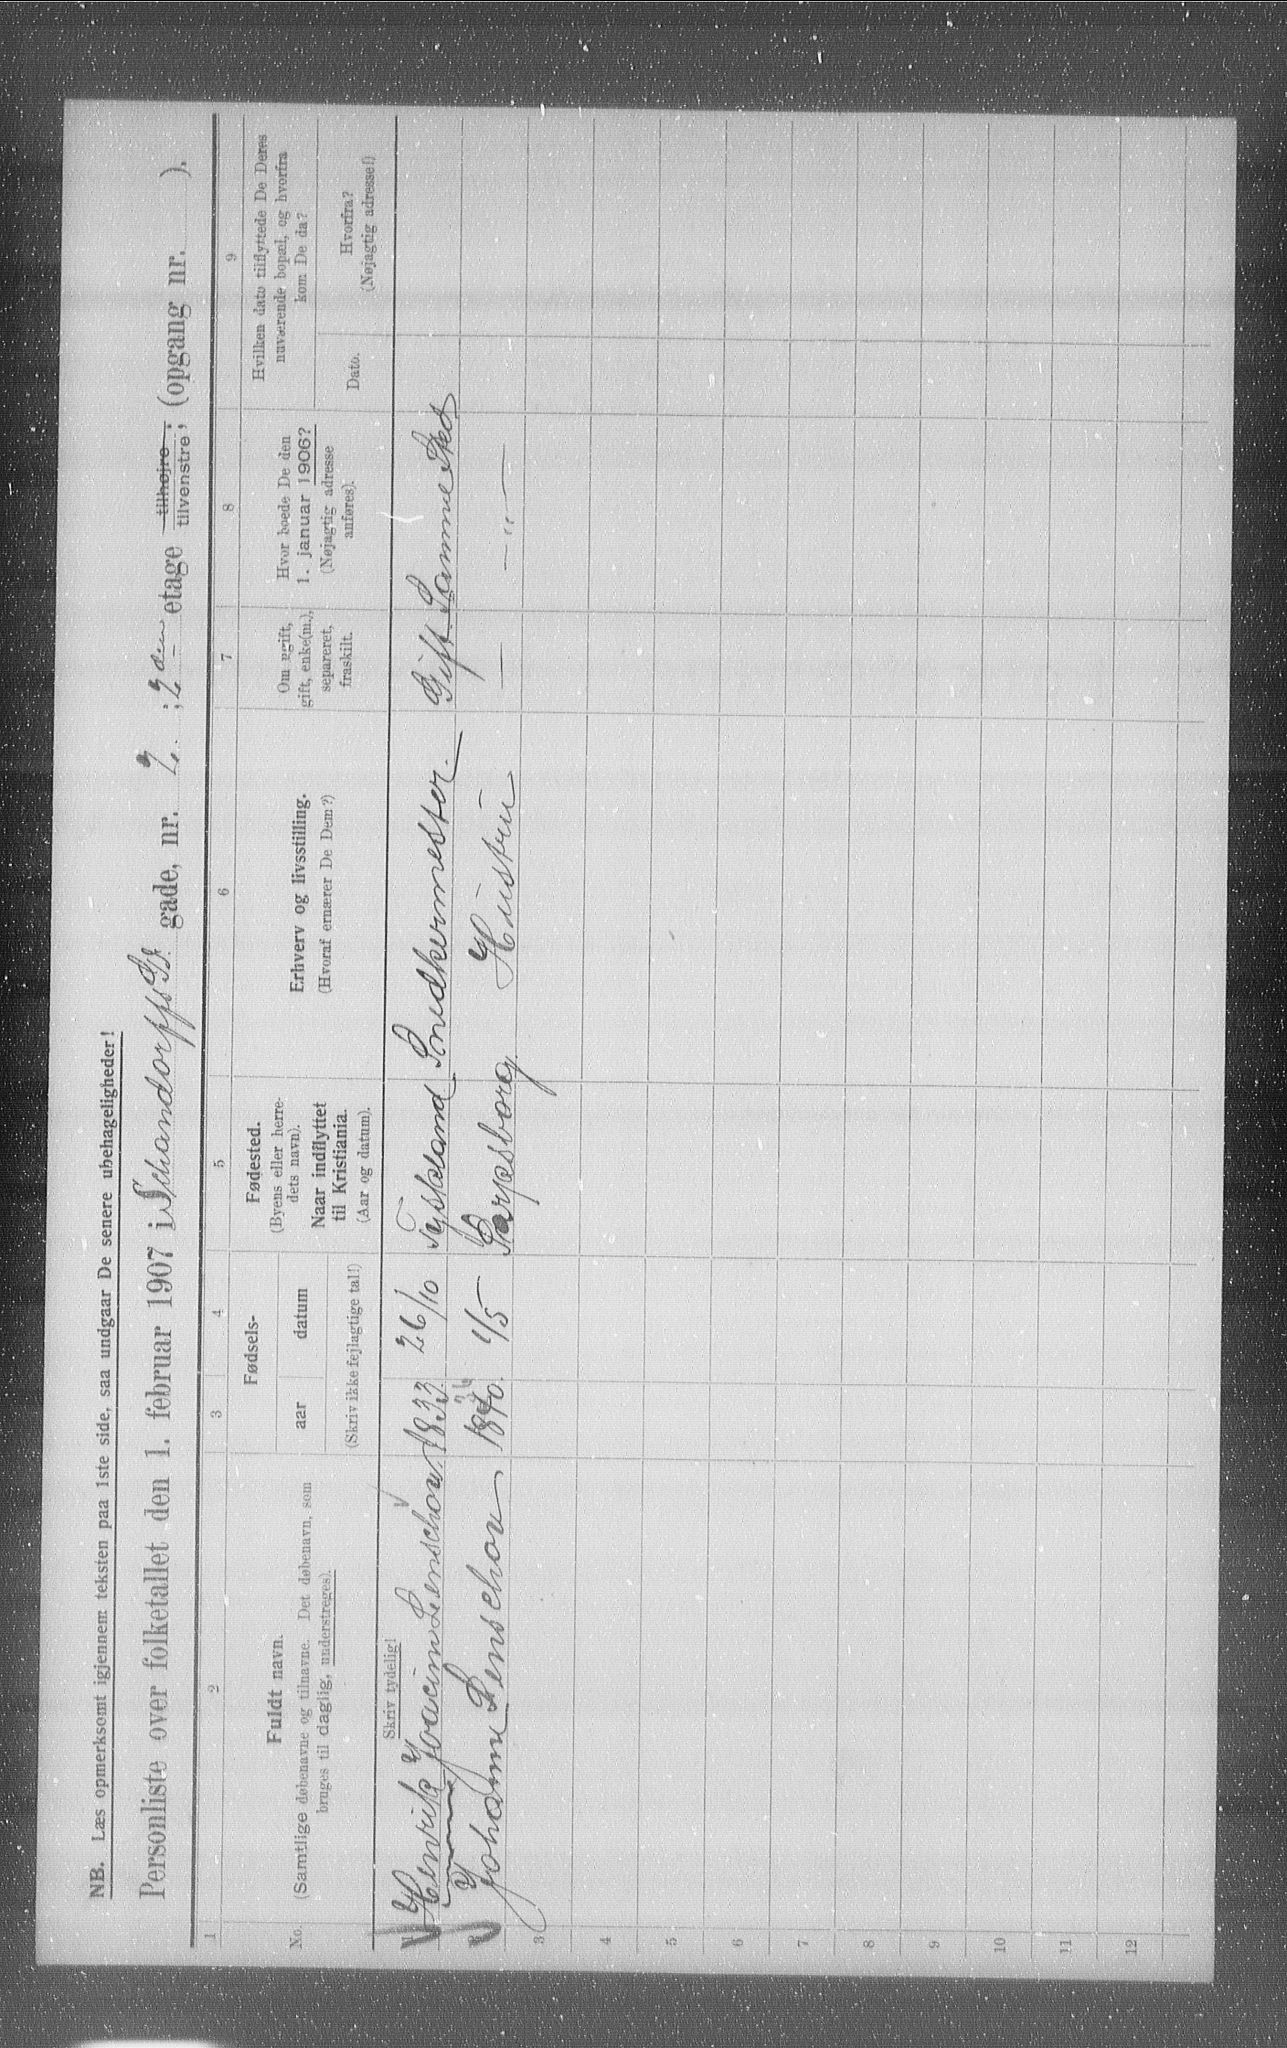 NB. Læs opmerksomt igjennem teksten paa 1ste side, saa undgaar De senere ubehageligheder!
Personliste over folketallet den 1. februar 1907 i Schandorffs gade, nr. 2 ; 2den etage tilhøjre, tilvenstre, (opgang nr. ).
1 2 3 4 5 6 7 8 9
No.
Fuldt navn.
(Samtlige døbenavne og tilnavne. Det døbenavn, som
bruges til daglig, understreges).
Fødsels-
aar datum
(Skriv ikke fejlagtige tal!)
Fødested.
(Byens eller herre-
dets navn).
Naar indflyttet
til Kristiania.
(Aar og datum).
Erhverv og livsstilling.
(Hvoraf ernærer De Dem?)
Om ugift,
gift, enke(m.),
separeret,
fraskilt.
Hvor boede De den
1. januar 1906?
(Nøjagtig adresse
anføres).
Hvilken dato tilflyttede De Deres
nuværende bopæl, og hvorfra
kom De da?
Dato.
Hvorfra?
(Nøjagtig adresse!)
Skriv tydelig!
1 Henrik Joacim Lenschow 1833 26/10 Tyskland Snedkermester. Gift Samme Sted
2 Johanne Lenschow 1840. 1/5 Sarpsborg Hustru — — „ —
3
4
5
6
7
8
9
10
11
12